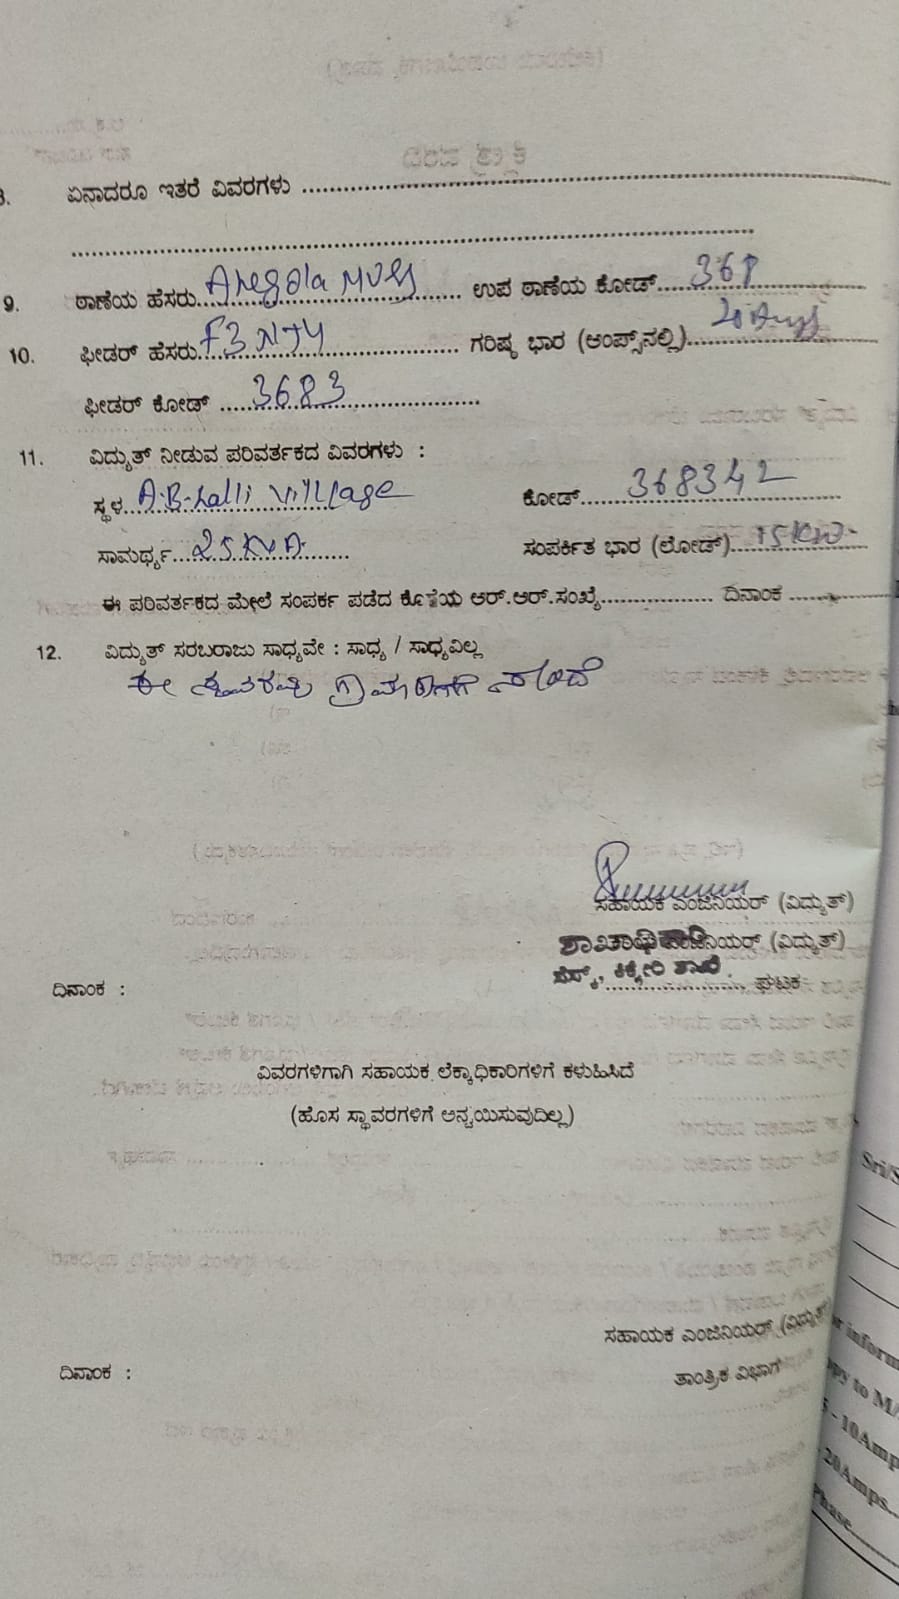 ಏನಾದರೂ ಇತರೆ ವಿವರಗಳು ........................
9. ಠಾಣೆಯ ಹೆಸರು.. Aregola MUSS ..... ಉಪ ಠಾಣೆಯ ಕೋಡ್.... 368
10. ಫೀಡರ್ ಹೆಸರು.. F3 NJY ........ ಗರಿಷ್ಠ ಭಾರ (ಆಂಪ್ಸ್‌ನಲ್ಲಿ)... 20 Amps
ಫೀಡರ್ ಕೋಡ್ .... 3683 ........
11. ವಿದ್ಯುತ್ ನೀಡುವ ಪರಿವರ್ತಕದ ವಿವರಗಳು :
ಸ್ಥಳ.. A.B-halli village ಕೋಡ್..... 368342
ಸಾಮರ್ಥ್ಯ... 25 KVA ..... ಸಂಪರ್ಕಿತ ಭಾರ (ಲೋಡ್)... 15 KW
ಈ ಪರಿವರ್ತಕದ ಮೇಲೆ ಸಂಪರ್ಕ ಪಡೆದ ಕೊನೆಯ ಆರ್.ಆರ್.ಸಂಖ್ಯೆ................ ದಿನಾಂಕ ................
12. ವಿದ್ಯುತ್ ಸರಬರಾಜು ಸಾಧ್ಯವೇ : ಸಾಧ್ಯ / ಸಾಧ್ಯವಿಲ್ಲ
ಈ
ಸಹಾಯಕ ಎಂಜಿನಿಯರ್ (ವಿದ್ಯುತ್)
ಶಾಖಾಧಿಕಾರಿ ಎಂಜಿನಿಯರ್ (ವಿದ್ಯುತ್)
ಸೆಸ್ಕ್, ಕಿಕ್ಕೇರಿ ಶಾಖೆ. ಘಟಕ
ದಿನಾಂಕ :
ವಿವರಗಳಿಗಾಗಿ ಸಹಾಯಕ ಲೆಕ್ಕಾಧಿಕಾರಿಗಳಿಗೆ ಕಳುಹಿಸಿದೆ
(ಹೊಸ ಸ್ಥಾವರಗಳಿಗೆ ಅನ್ವಯಿಸುವುದಿಲ್ಲ)
ಸಹಾಯಕ ಎಂಜಿನಿಯರ್ (ವಿದ್ಯುತ್)
ದಿನಾಂಕ : ತಾಂತ್ರಿಕ ವಿಭಾಗ
Sri/S
inform
py to M/
- 10Amp
20Amps..
Phase......